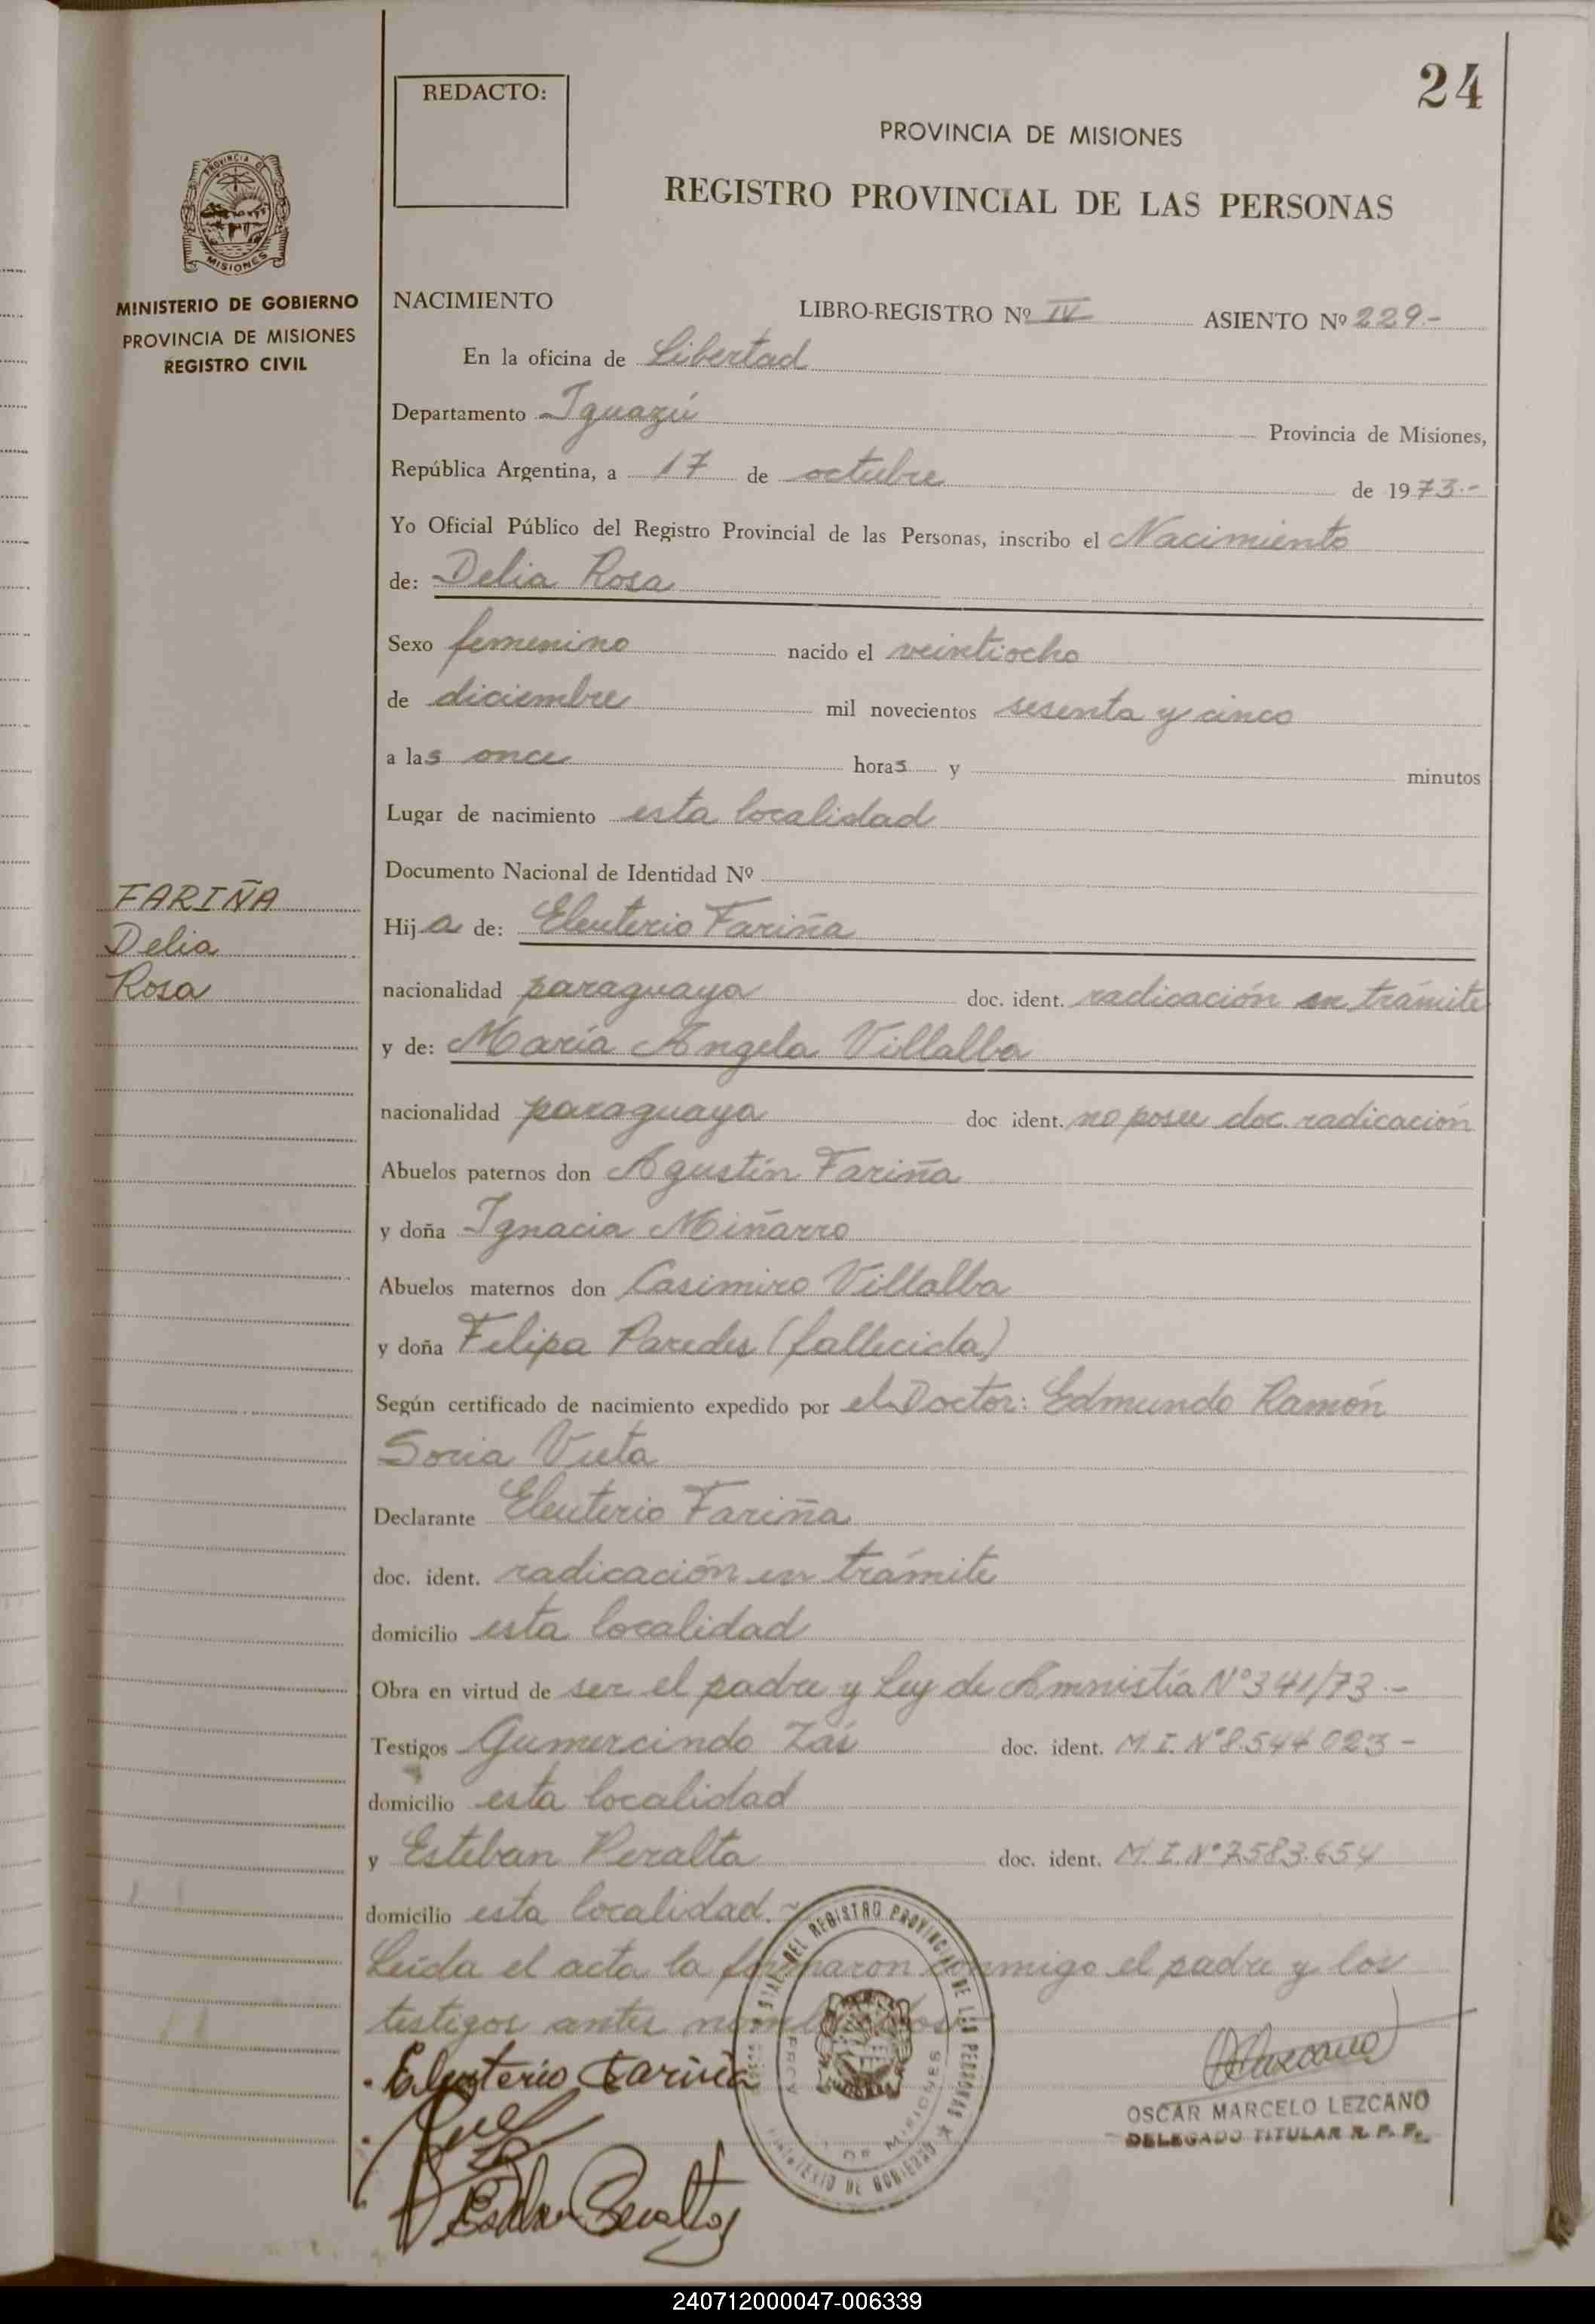 24
REDACTO:
PROVINCIA DE MISIONES
REGISTRO PROVINCIAL DE LAS PERSONAS
PROVINCIA DE
MISIONES
MINISTERIO DE GOBIERNO
PROVINCIA DE MISIONES
REGISTRO CIVIL
NACIMIENTO LIBRO-REGISTRO Nº IV ASIENTO Nº 229.-
En la oficina de Libertad
Departamento Iguazú Provincia de Misiones,
República Argentina, a 17 de octubre de 1973.-
Yo Oficial Público del Registro Provincial de las Personas, inscribo el Nacimiento
de: Delia Rosa
Sexo femenino nacido el veintiocho
de diciembre mil novecientos sesenta y cinco
a las once horas y minutos
Lugar de nacimiento esta localidad
Documento Nacional de Identidad Nº
FARIÑA
Delia
Rosa
Hija de: Eleuterio Fariña
nacionalidad paraguaya doc. ident. radicación en trámite
y de: María Angela Villalba
nacionalidad paraguaya doc ident. no posee doc. radicación
Abuelos paternos don Agustín Fariña
y doña Ignacia Miñarro
Abuelos maternos don Casimiro Villalba
y doña Felipa Paredes (fallecida)
Según certificado de nacimiento expedido por el Doctor: Edmundo Ramón
Soria Vieta
Declarante Eleuterio Fariña
doc. ident. radicación en trámite
domicilio esta localidad
Obra en virtud de ser el padre y Ley de Amnistía Nº 341/73.-
Testigos Gumercindo Zás doc. ident. M.I. Nº 8544023-
domicilio esta localidad
y Esteban Peralta doc. ident. M.I. Nº 7583.654
domicilio esta localidad.-
Leída el acta la firmaron conmigo el padre y los
testigos antes nombrados
Eleuterio Fariña
Esteban Peralta
DEL REGISTRO PROVINCIAL DE LAS PERSONAS
MINISTERIO DE GOBIERNO
DE MISIONES
OSCAR MARCELO LEZCANO
DELEGADO TITULAR R. P. P.
240712000047-006339